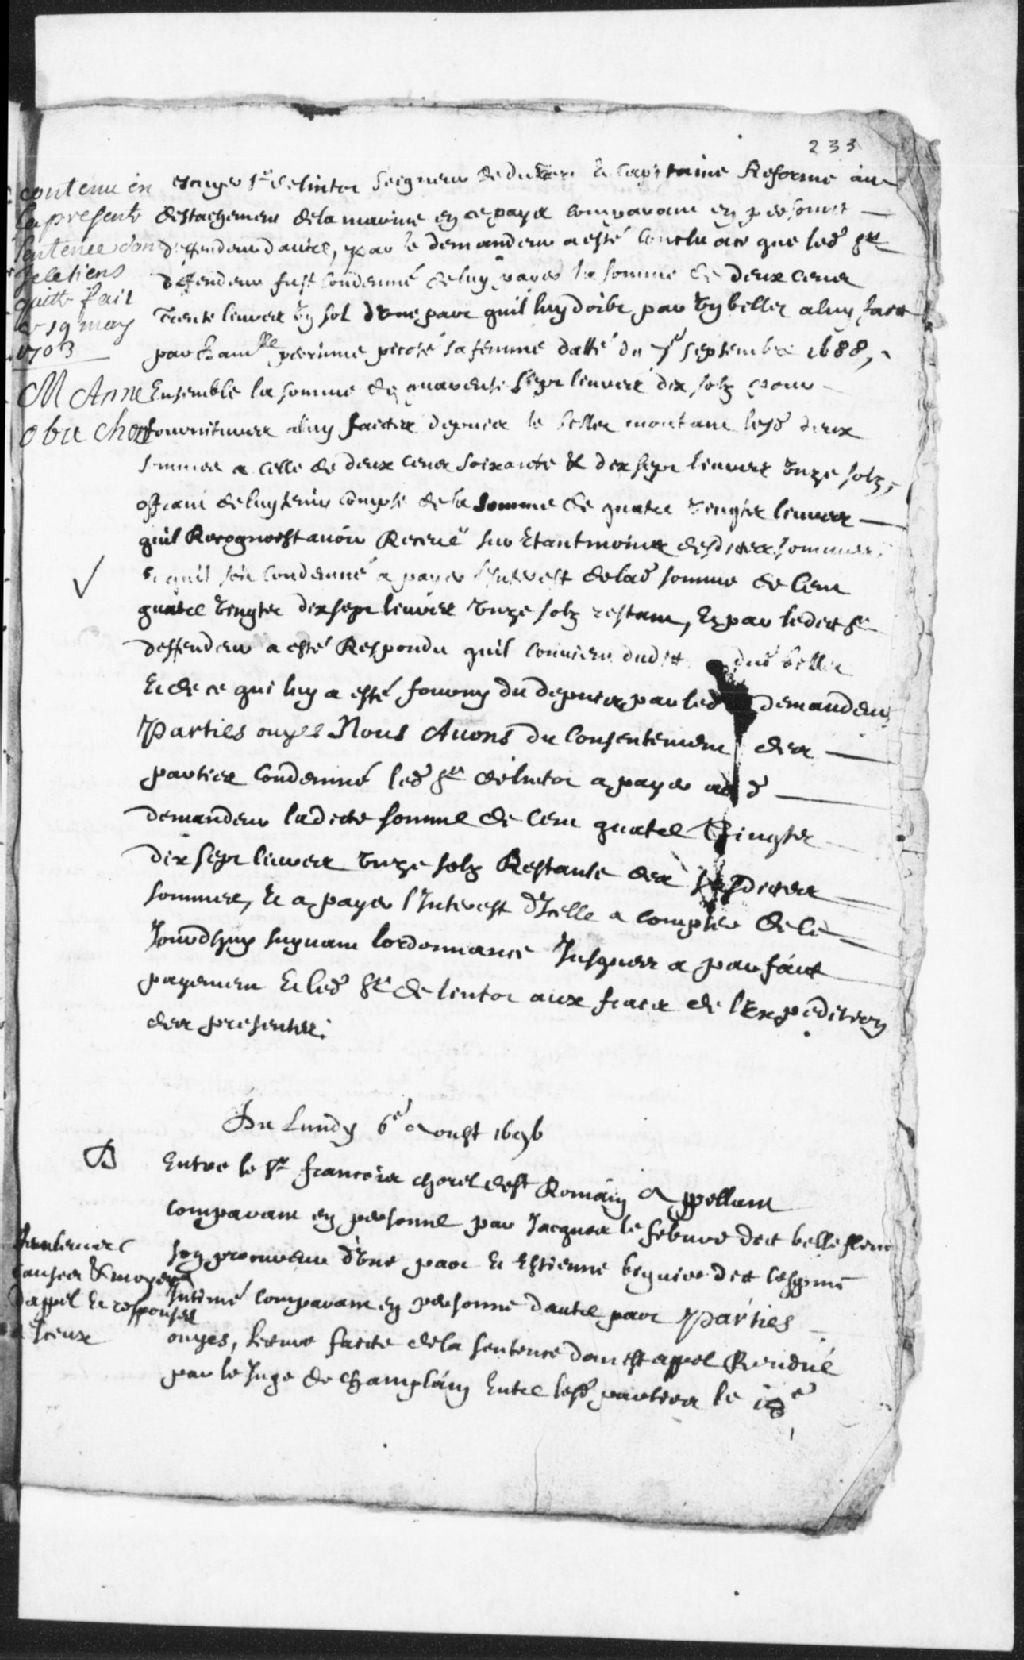 233
contenu en
la presente
sentence dont
je le tiens
quitte fait
ce 19 may
1703
M Anne
obuchon
Rouyer Sr delintot Seigneur de dutort & Capitaine Reformé au
destachement de la marine en ce pays comparant en personne
deffendeur d'autre, par le demandeur a esté conclu a ce que led Sr
deffendeur fust condemné de luy payer la somme de deux cens
trente livres un sol d'une part quil luy doibt par un billet a luy fait
par damlle perrinne picoté sa femme datté du 7e septembre 1688,
Ensemble la somme de quarente sept livres dix solz pour
fournitures a luy faictes depuis le billet montant lesd deux
sommes a celle de deux cens soixante & dix sept livres unze solz,
offrant de luy tenir compte de la somme de quatre vingts livres
quil Recognoist avoir Receue sur Etantmoins desdictes sommes
& quil soit condemné a payer l'Interest de lad somme de Cent
quatre vingts dix sept livres unze solz restant, Et par ledict Sr
deffendeur a esté Respondu quil convient dudit dud billet
Et de ce qui luy a esté fourny du depuis par led demandeur
Parties ouyes Nous Avons du consentement des
parties condemné led Sr delintot a payer aud
demandeur ladicte somme de Cent quatre Vingts
dix sept livres unze solz Restante des susdictes
sommes, Et a payer l'Interest d'Icelle a compter de ce
Jourdhuy suyvant lordonnance Jusques a parfait
payement Et led Sr de lintot aux frais de l'Expedition
des presentes.
Du Lundy 6e Aoust 1696
Entre le Sr francois chorel de St Romain Appellant
comparant en personne par Jacques le febvre dit belle fleur
son procureur d'Une part Et Estienne beguier dit lespinne
Intimé comparant en personne d'autre part Parties
ouyes, lecture faicte de la sentence dont est appel Rendue
par le Juge de Champlain Entre lesd parties le 18e
causes & moyens
d'appel Et responses
a Iceux